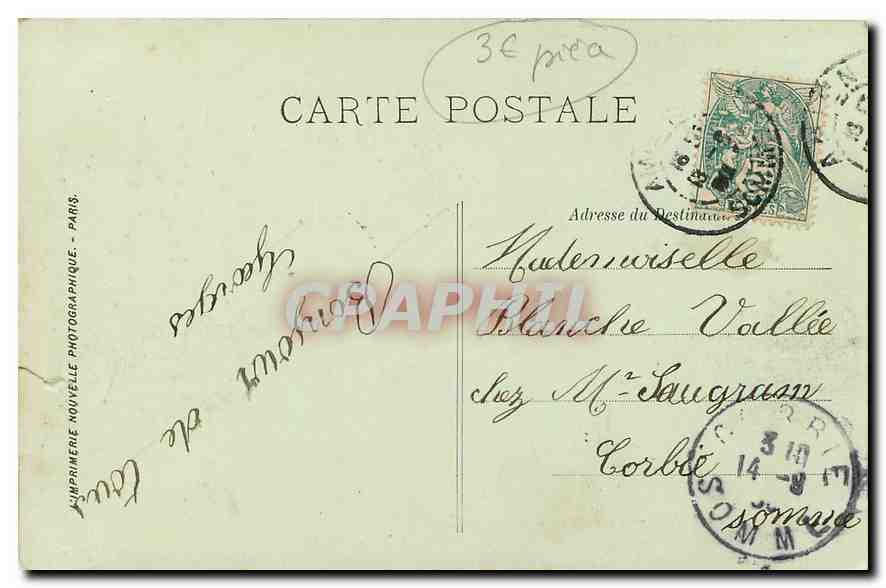 3€ pièa
CARTE POSTALE
Adresse du Destinataire
Mademoiselle
Blanche Vallée
chez Mr Saugram
Corbie
Somme
Bonjour de tous
Georges
IMPRIMERIE NOUVELLE PHOTOGRAPHIQUE. - PARIS.
CORBIE
3 10
14 - 8
SOMME
CPAPHIL